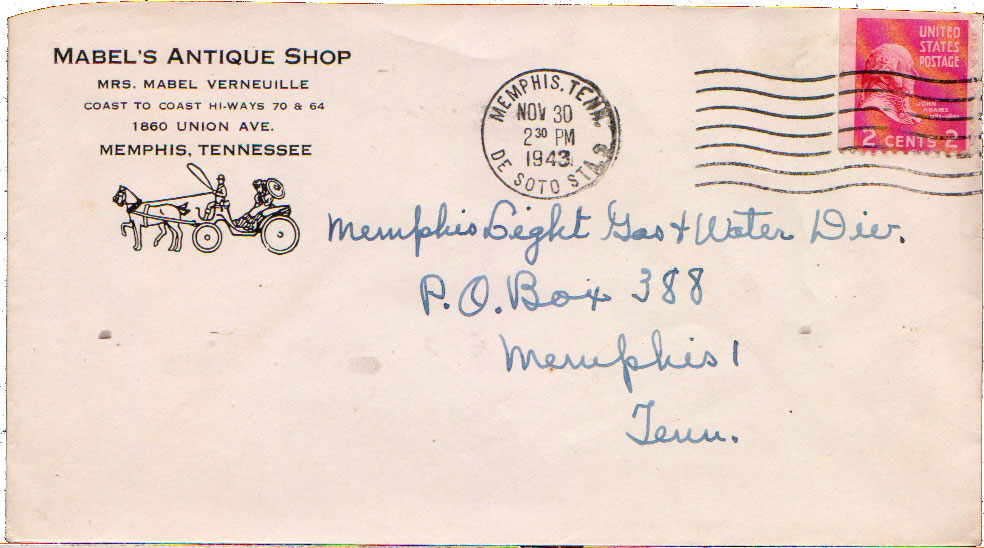 MABEL'S ANTIQUE SHOP
MRS. MABEL VERNEUILLE
COAST TO COAST HI-WAYS 70 & 64
1860 UNION AVE.
MEMPHIS, TENNESSEE
MEMPHIS, TENN.
NOV 30
2 30 PM
1943
DE SOTO STA.
UNITED
STATES
POSTAGE
JOHN
ADAMS
2 CENTS 2
Memphis Light Gas & Water Div.
P.O. Box 388
Memphis 1
Tenn.